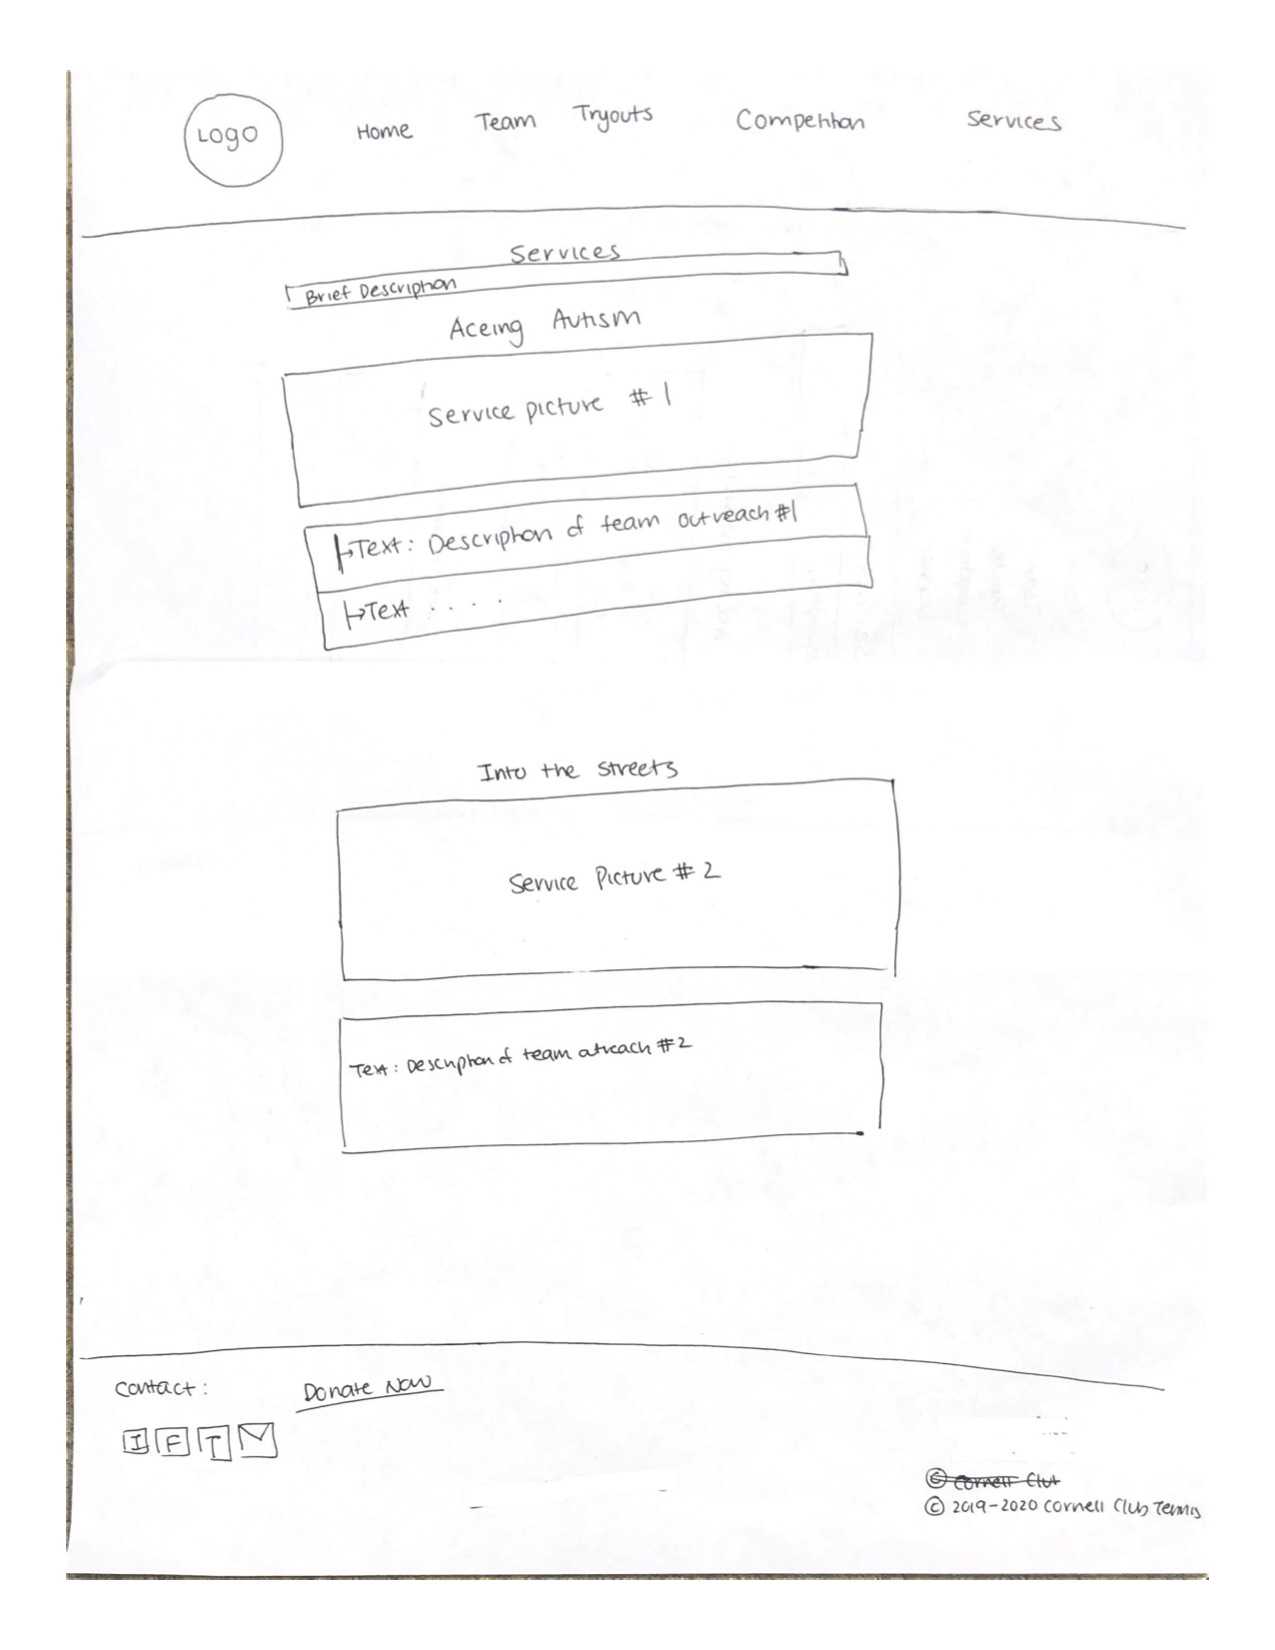 LOGO Home Team Tryouts Competition Services
Services
Brief Description
Aceing Autism
Service picture #1
Text: Description of team outreach #1
Text ....
Into the streets
Service Picture #2
Text: Description of team outreach #2
Contact: Donate Now
I F T
© Cornell Club
© 2019-2020 Cornell Club Tennis